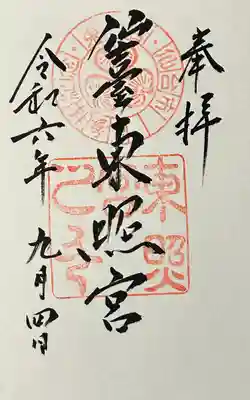 奉拝
仙臺東照宮
令和六年九月四日
東照